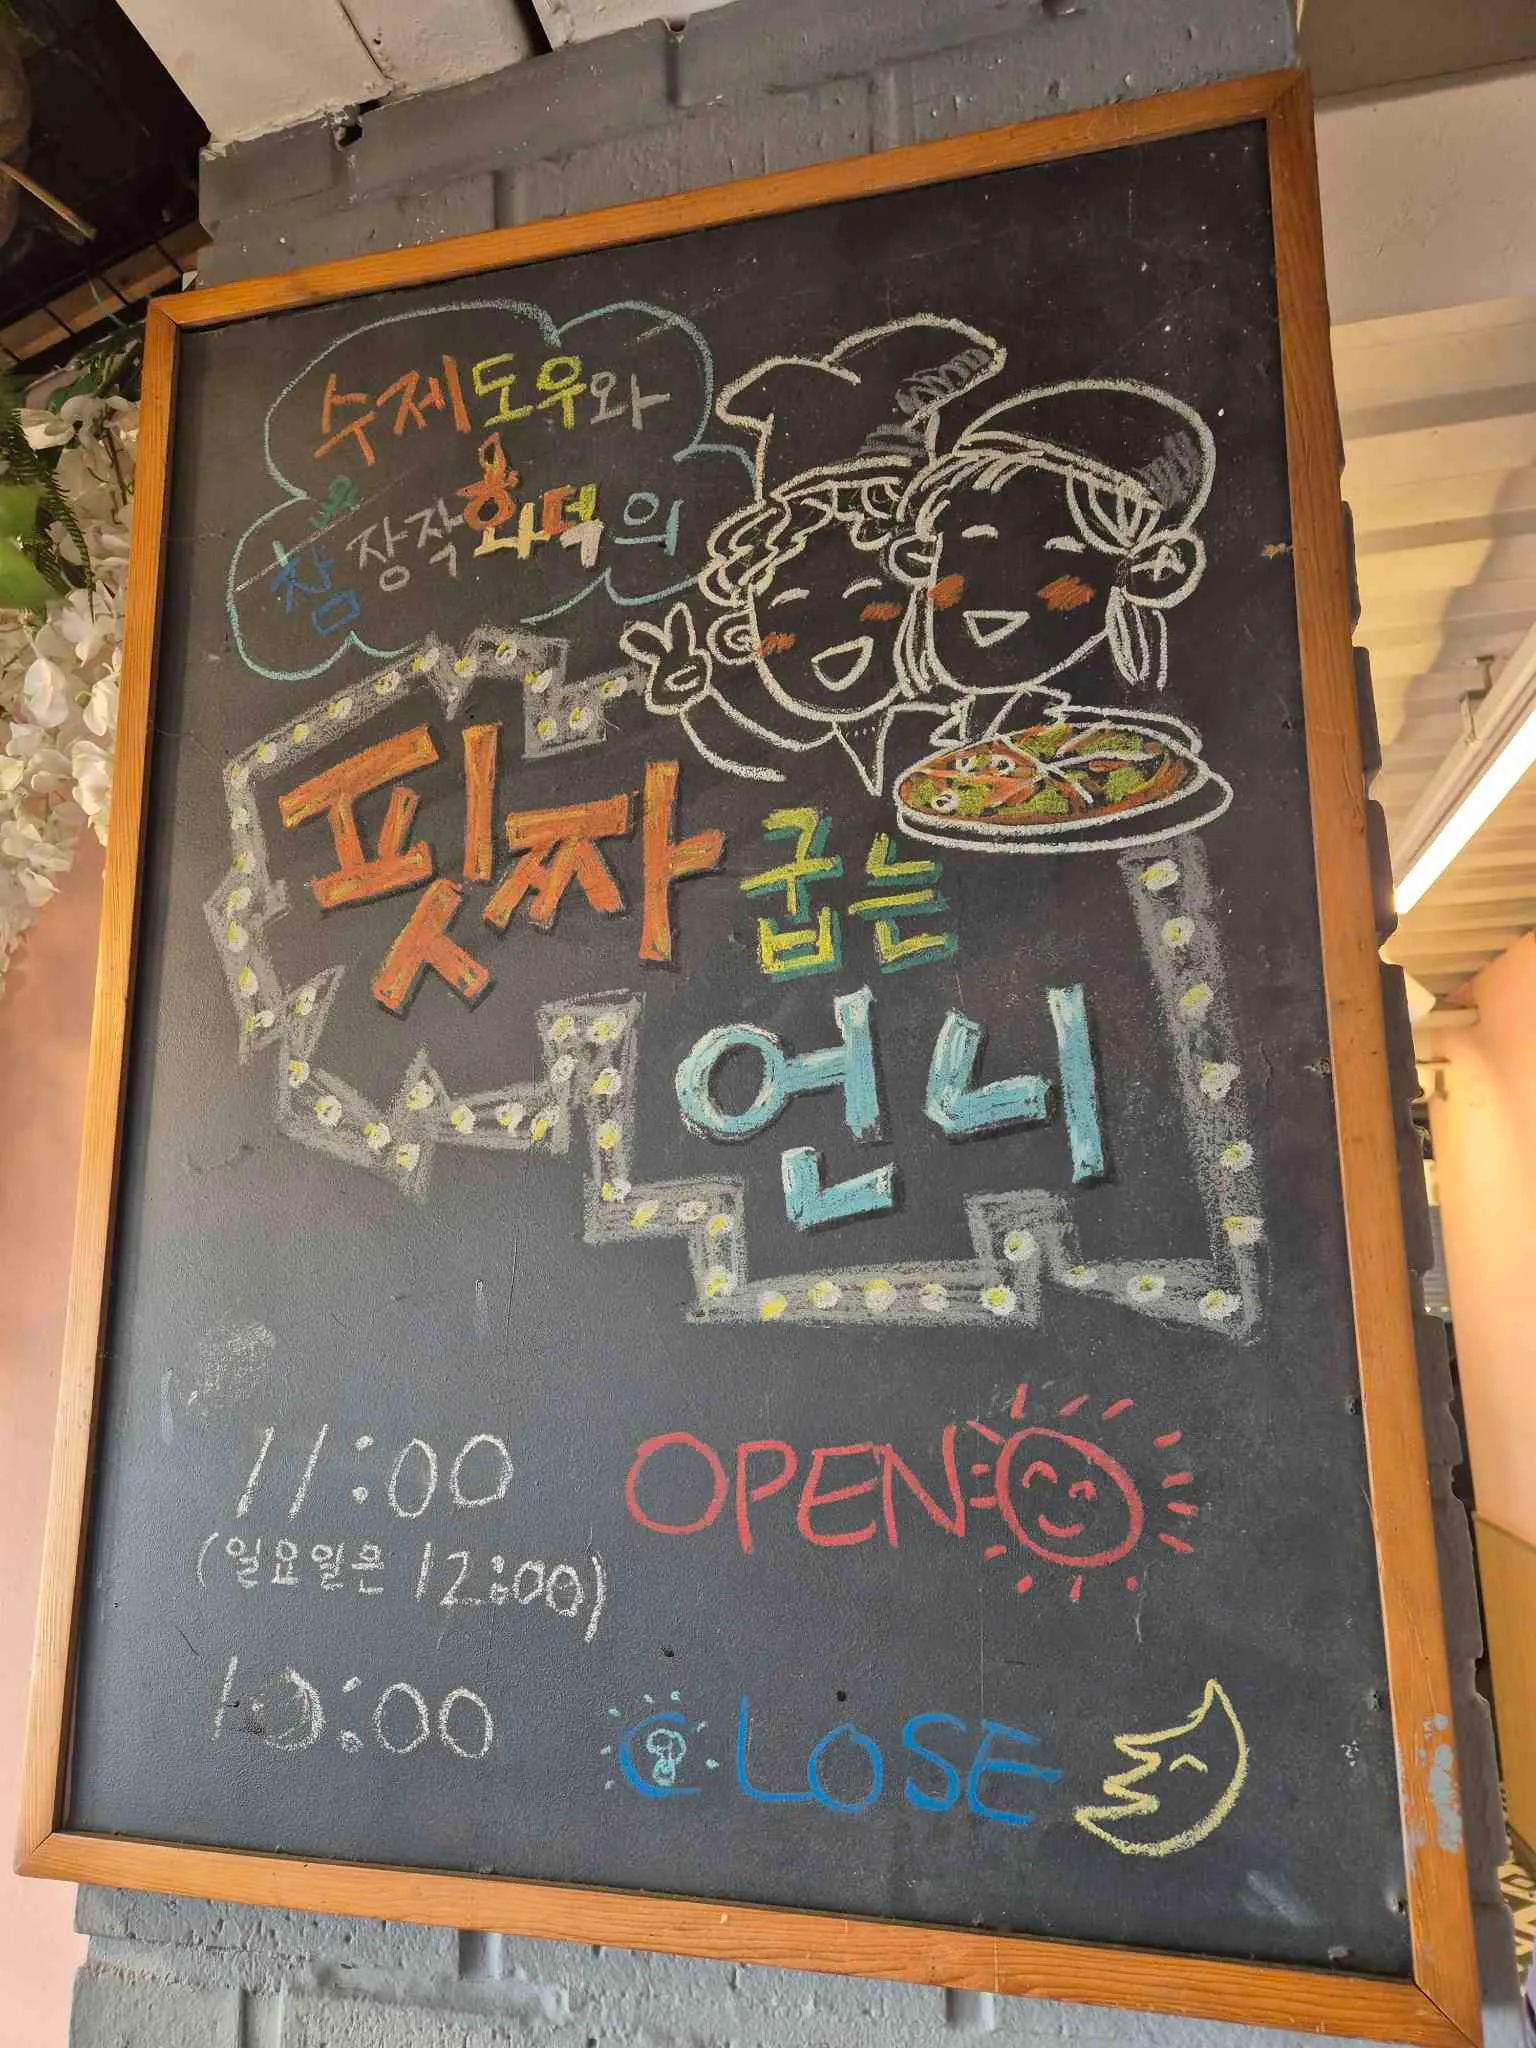 수제도우와
참장작화덕의
핏짜 굽는
언니
11:00 OPEN
(일요일은 12:00)
10:00 CLOSE